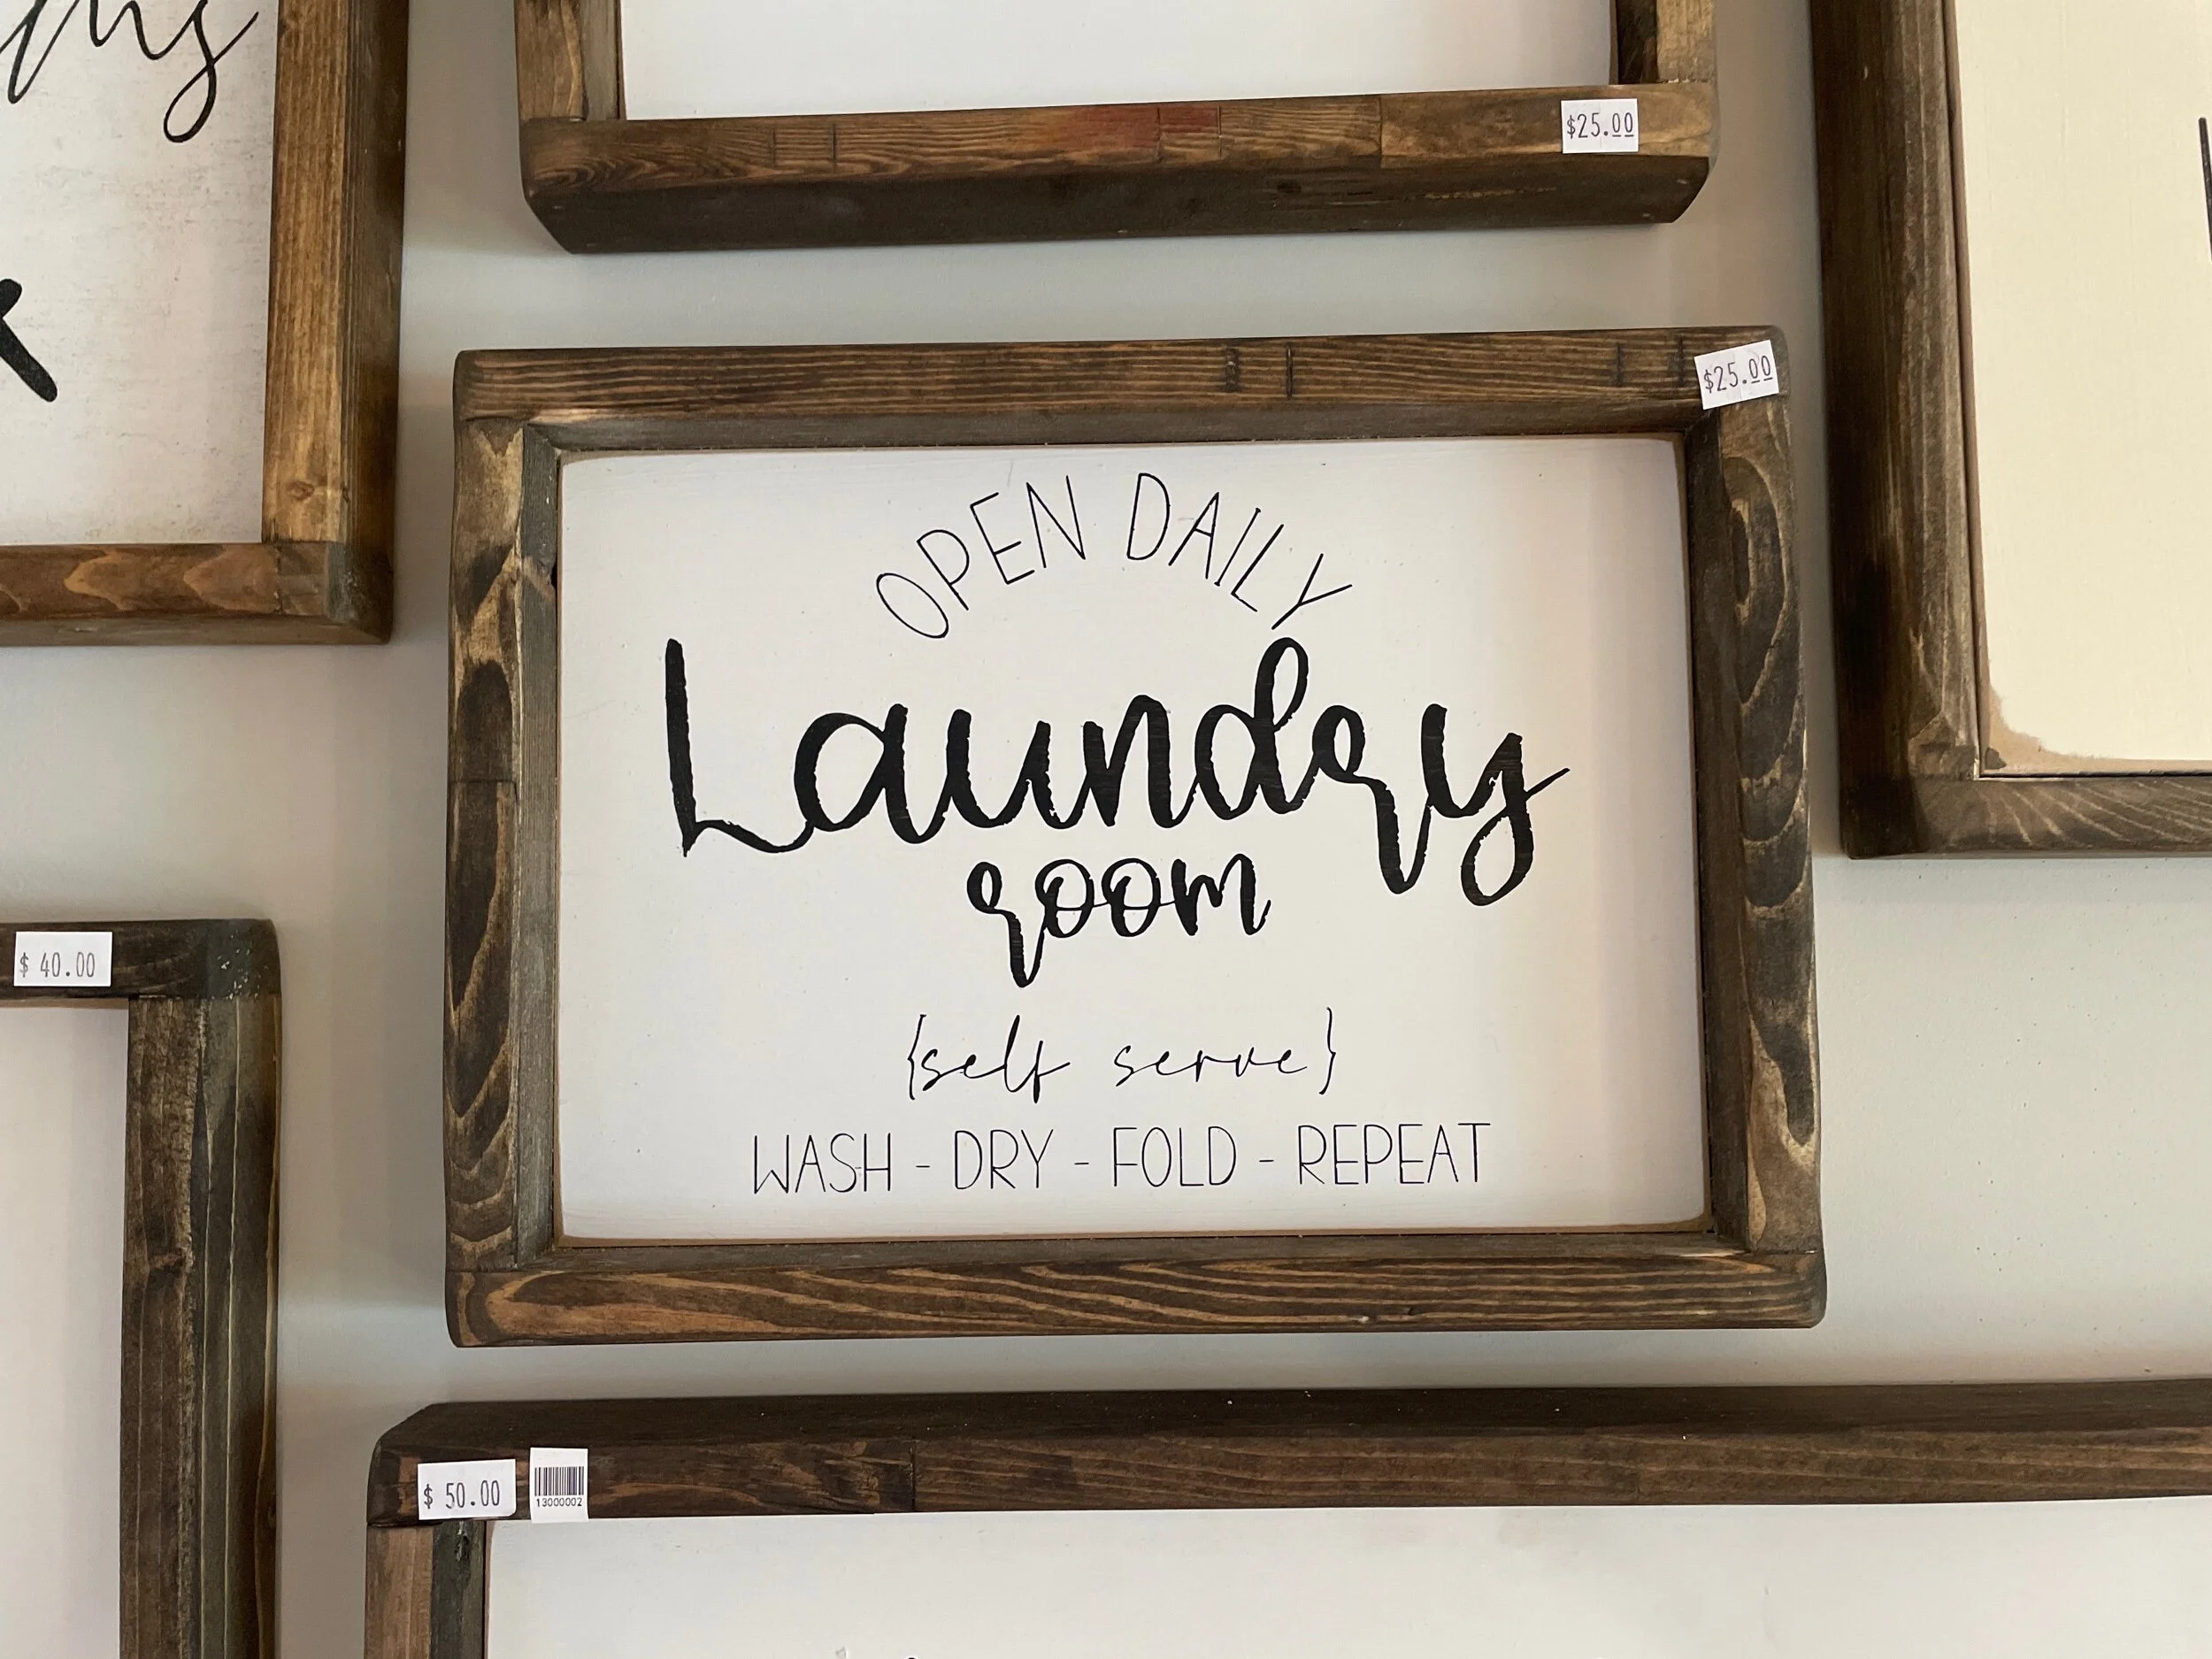 $25.00
$25.00
OPEN DAILY
Laundry
room
{self serve}
WASH - DRY - FOLD - REPEAT
$ 40.00
$ 50.00
13000002